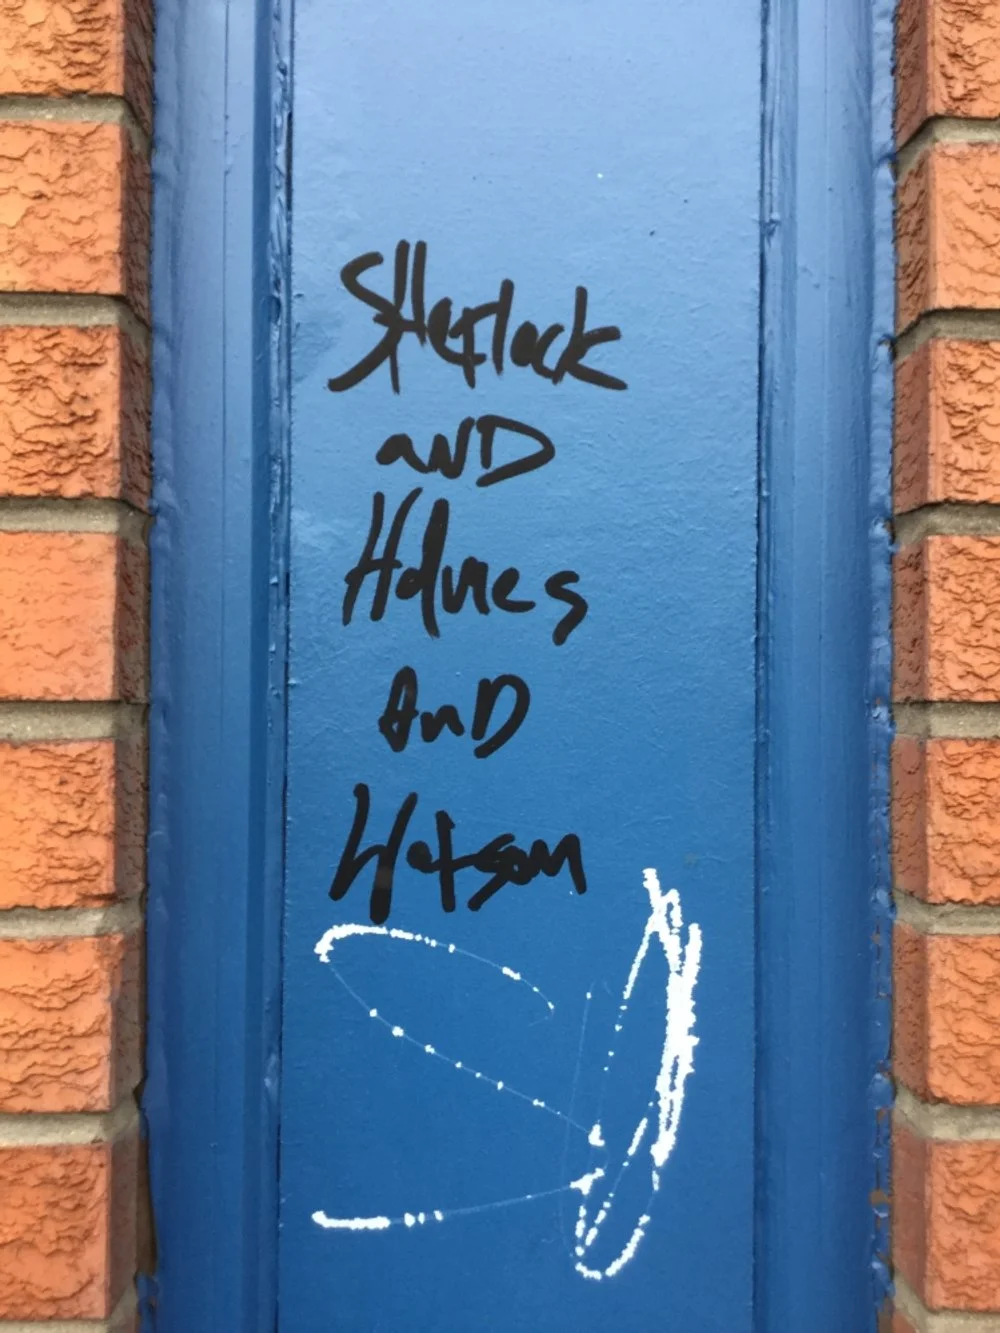 SHerlock
aND
Holmes
AnD
Watson